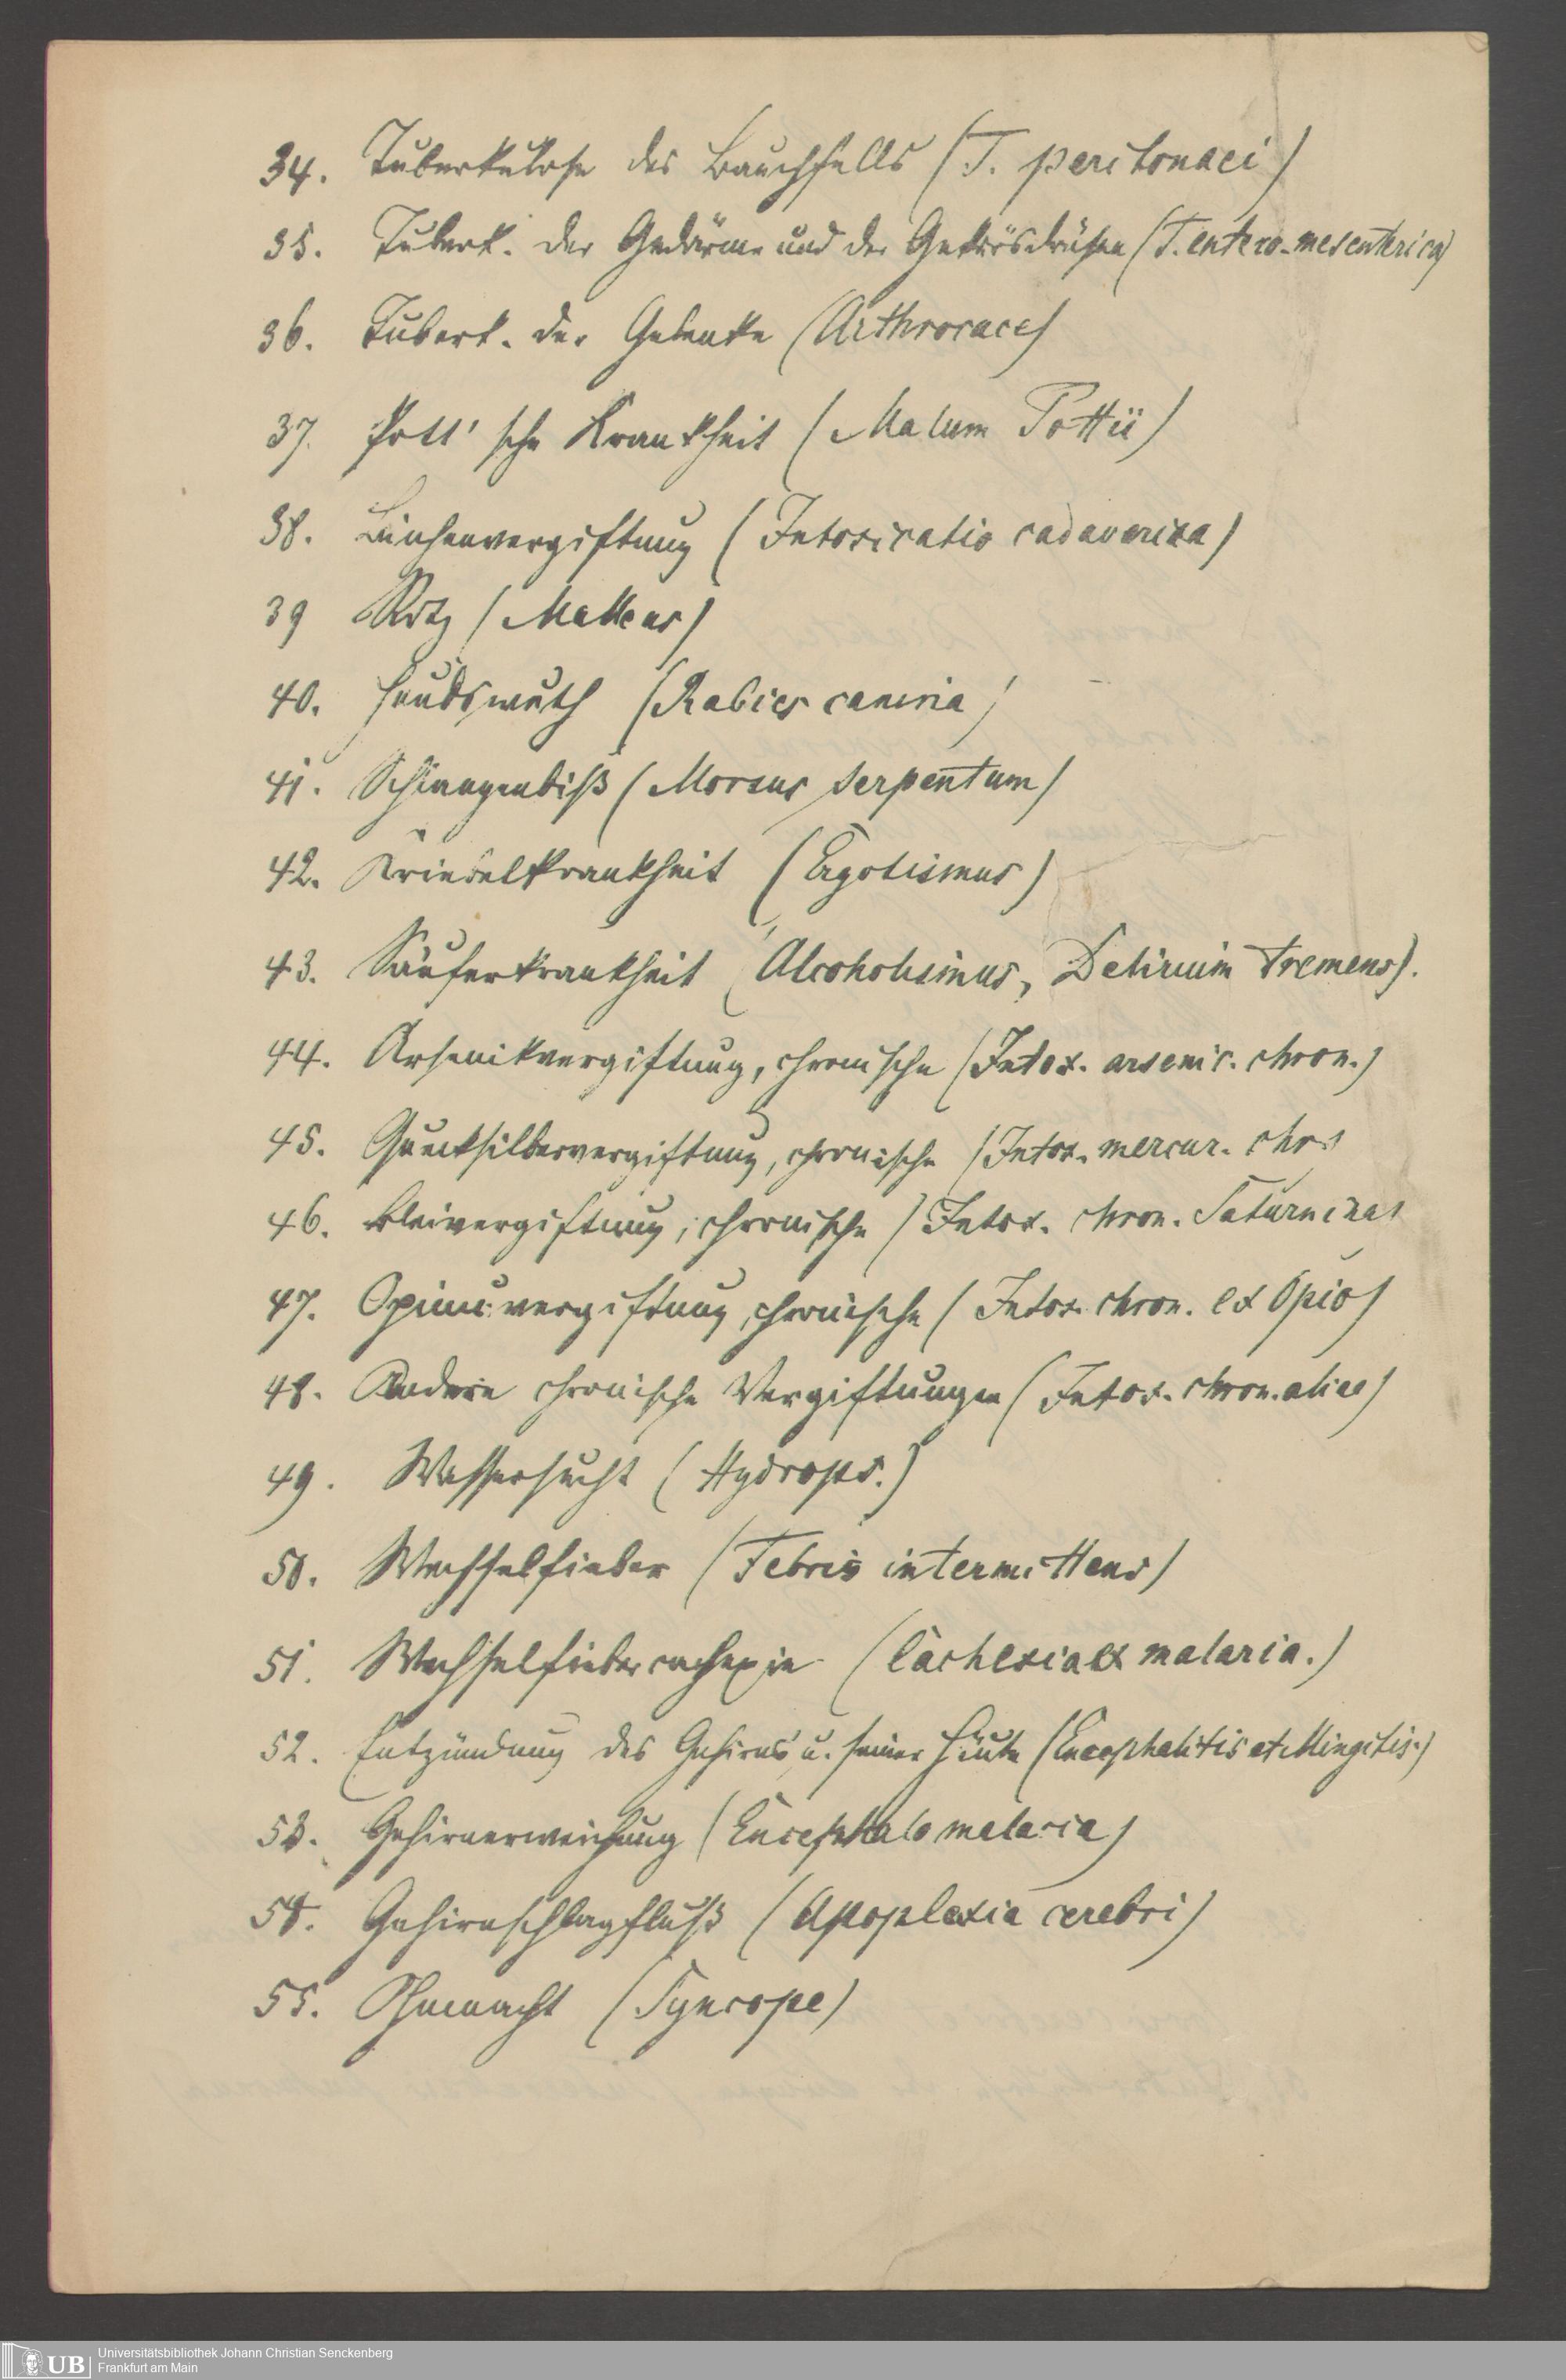 34. Tuberkulose des Bauchfells (T. peritonaei)
35. Tuberk. der Gedärme und der Gekrösdrüsen (T. entero-mesenterica)
36. Tuberk. der Gelenke (Arthrocace)
37. Pott'sche Krankheit (Malum Pottii)
38. Leichenvergiftung (Intoxicatio cadaverica)
39 Rotz (Malleus)
40. Hundswuth (Rabies canina)
41. Schlangenbiß (Morsus serpentum)
42. Kriebelkrankheit (Ergotismus)
43. Säuferkrankheit (Alcoholismus, Delirium tremens).
44. Arsenikvergiftung, chronische (Intox. arsenic. chron.)
45. Quecksilbervergiftung, chronische (Intox. mercur. chr.)
46. Bleivergiftung, chronische (Intox. chron. Saturnina)
47. Opiumvergiftung, chronische (Intox. chron. ex Opio)
48. Andere chronische Vergiftungen (Intox. chron. aliae)
49. Wassersucht (Hydrops.)
50. Wechselfieber (Febris intermittens)
51. Wechselfiebercachexie (Cachexia ex malaria.)
52. Entzündung des Gehirns u. seiner Häute (Encephalitis et Mingitis.)
53. Gehirnerweichung (Encephalomalacia)
54. Gehirnschlagfluß (Apoplexia cerebri)
55. Ohnmacht (Syncope)
UB
Universitätsbibliothek Johann Christian Senckenberg
Frankfurt am Main